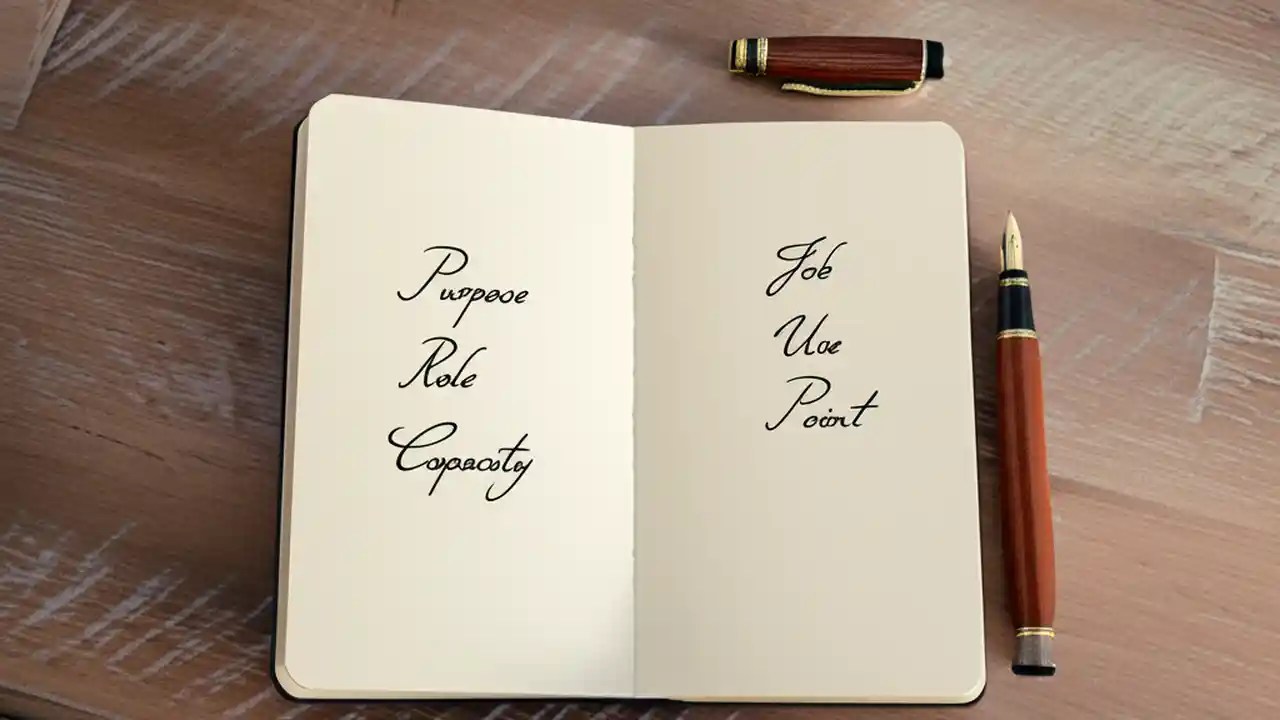 Purpose
Role
Capacity
Job
Use
Point